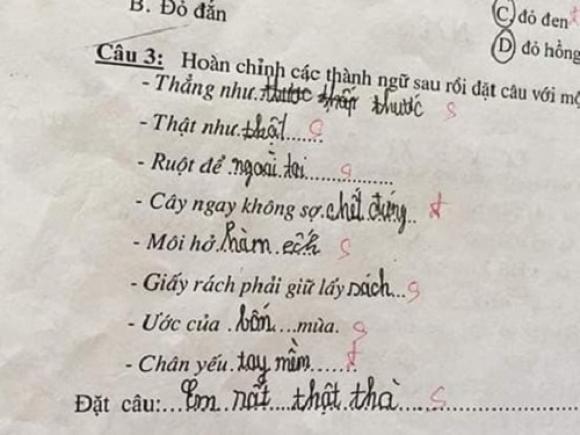 B. Đỏ đắn
C đỏ đen
D đỏ hồng
Câu 3: Hoàn chỉnh các thành ngữ sau rồi đặt câu với
- Thẳng như thước s
- Thật như.thật....... s
- Ruột để ngoài tai............... s
- Cây ngay không sợ.chết đứng.. đ
- Môi hở.hàm ếch s
- Giấy rách phải giữ lấy sách... s
- Ước của .bốn....mùa. s
- Chân yếu.tay mềm....... đ
Đặt câu:...Em rất...thật thà s